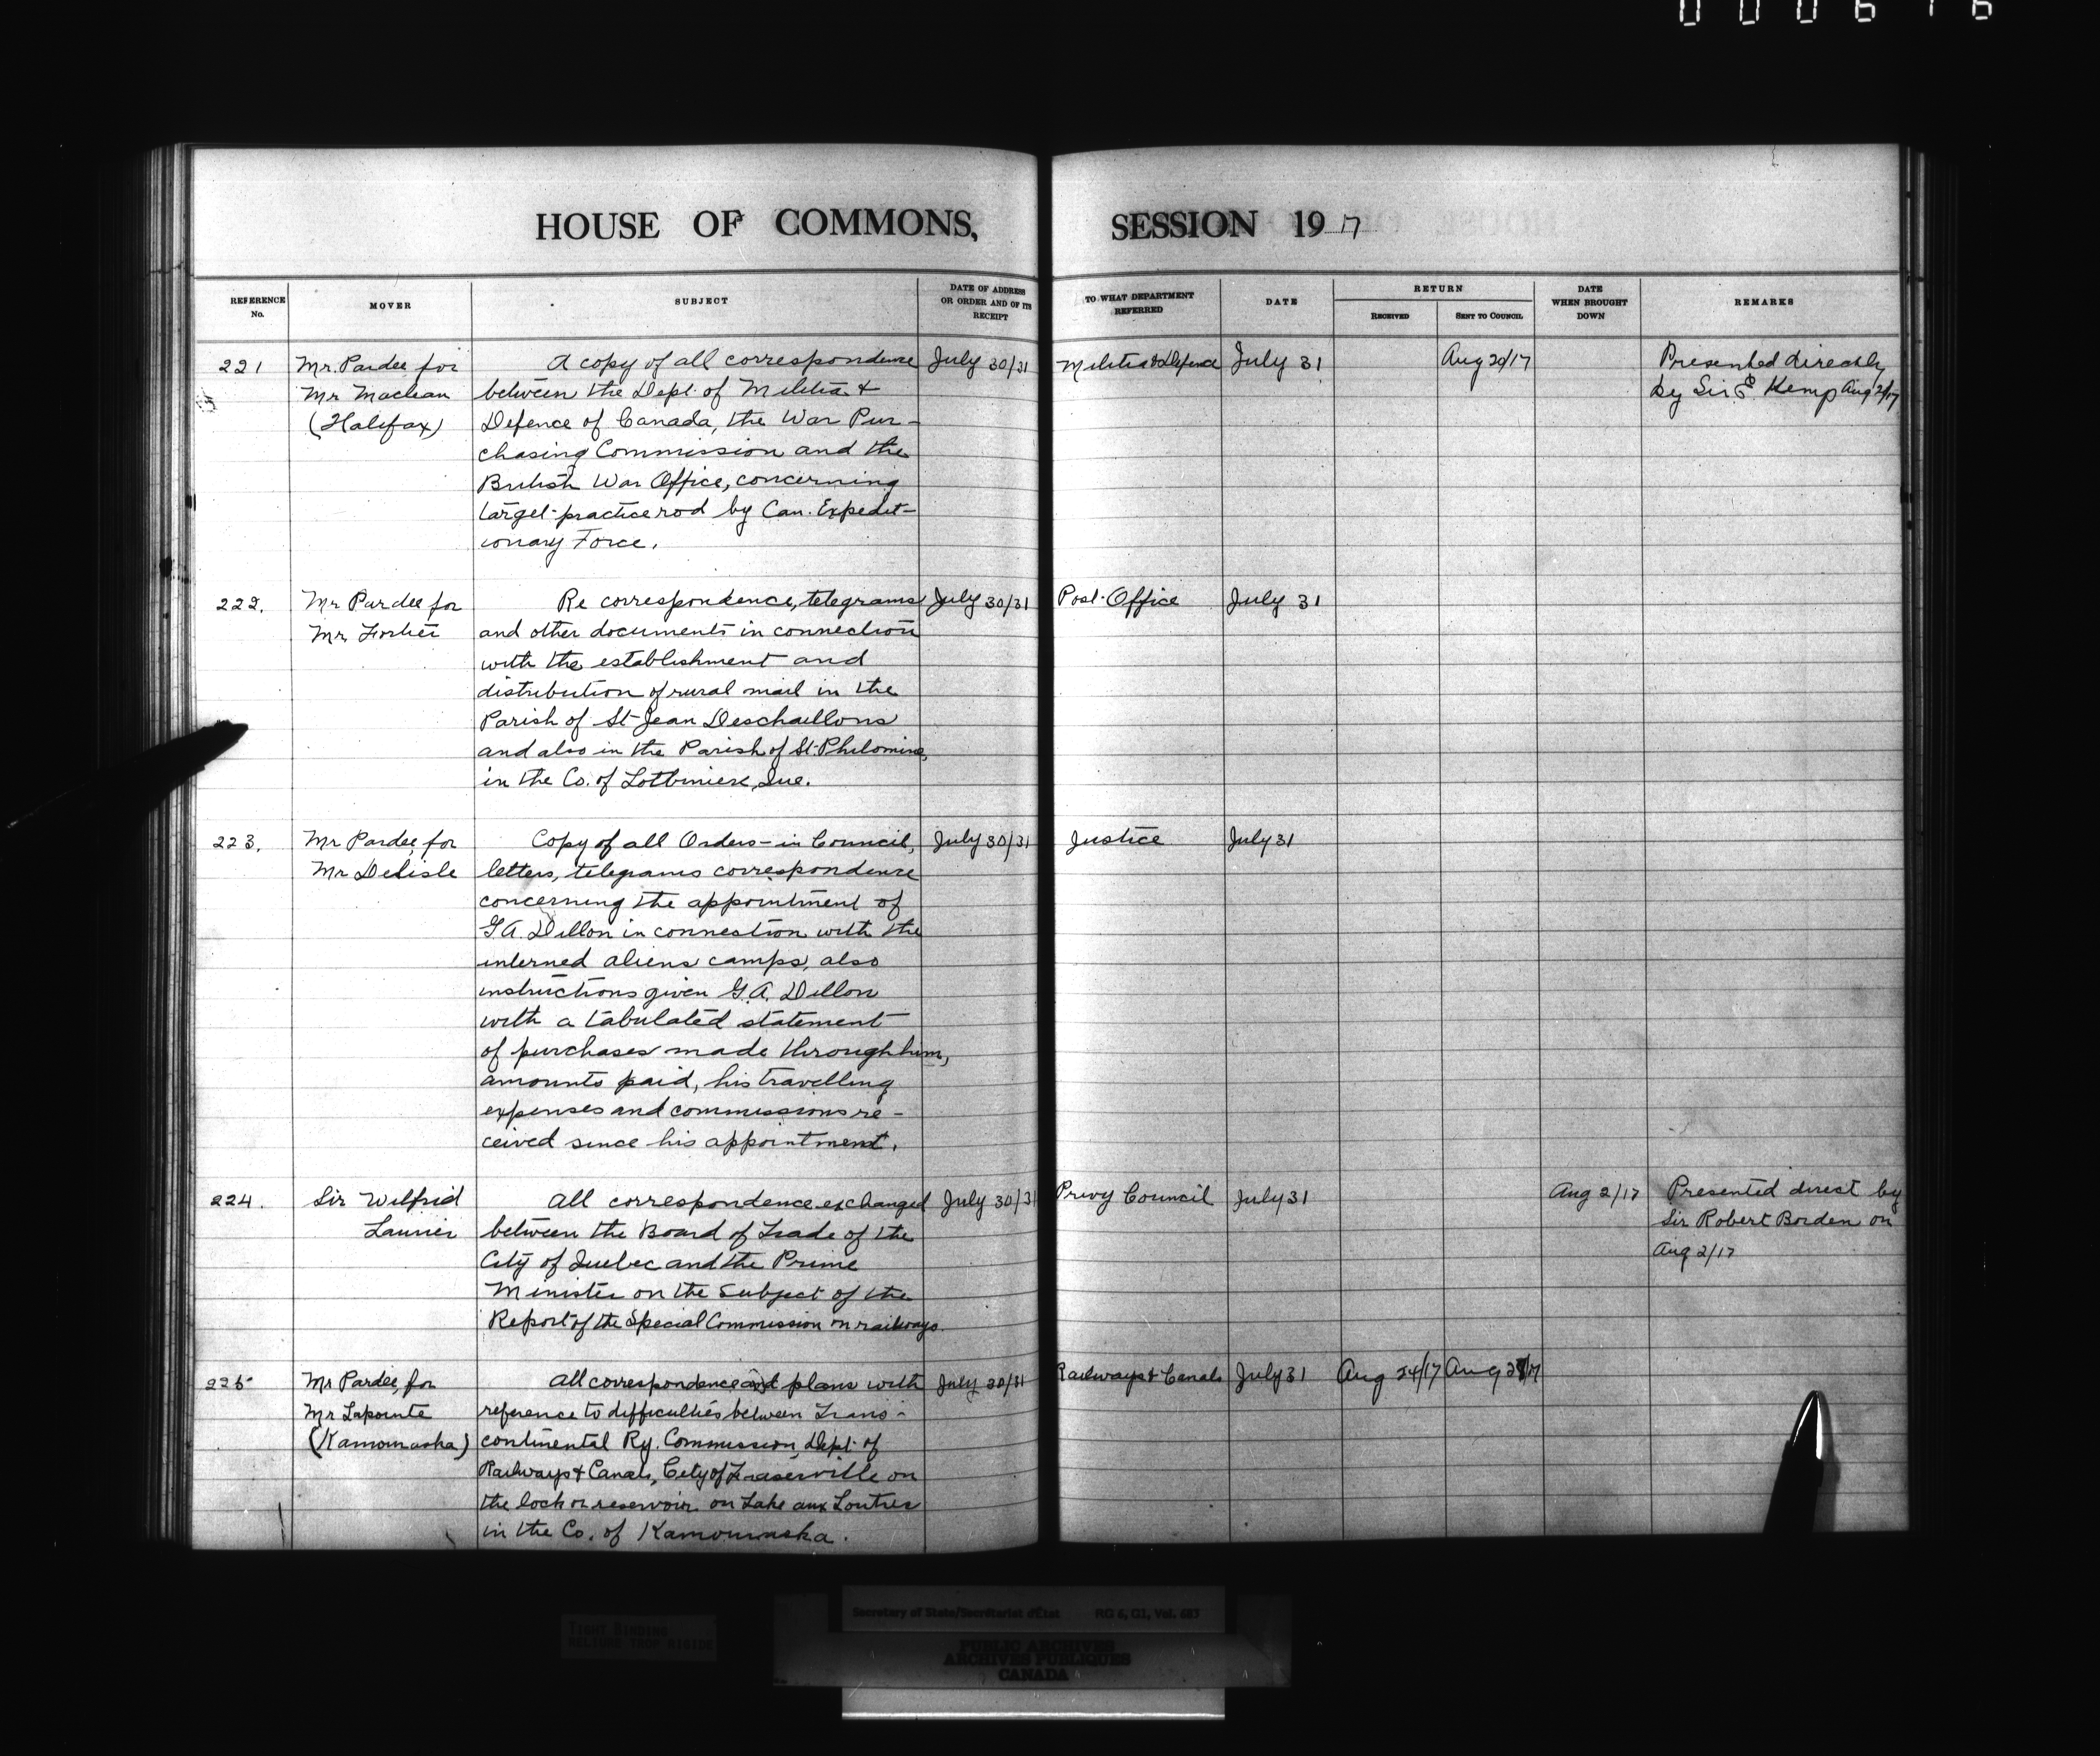 HOUSE OF COMMONS, SESSION 1917
REFERENCE No.
MOVER
SUBJECT
DATE OF ADDRESS OR ORDER AND OF ITS RECEIPT
TO WHAT DEPARTMENT REFERRED
DATE
RETURN
RECEIVED
SENT TO COUNCIL
DATE WHEN BROUGHT DOWN
REMARKS
221
Mr. Pardee for
Mr Maclean
(Halifax)
A copy of all correspondence
between the Dept. of Militia &
Defence of Canada, the War Pur-
chasing Commission and the
British War Office, concerning
target practice rod by Can. Expedit-
ionary Force.
July 30/31
Militia & Defence
July 31
Aug 20/17
Presented directly
by Sir E. Kemp Aug
222.
Mr Pardee for
Mr Fortier
Re correspondence, telegrams
and other documents in connection
with the establishment and
distribution of rural mail in the
Parish of St Jean Deschaillons
and also in the Parish of St. Philomine,
in the Co. of Lotbiniere, Que.
July 30/31
Post Office
July 31
223.
Mr Pardee for
Mr Delisle
Copy of all Orders-in Council,
letters, telegrams correspondence
concerning the appointment of
G.A. Dillon in connection with the
interned aliens camps, also
instructions given G.A. Dillon
with a tabulated statement
of purchases made through him,
amounts paid, his travelling
expenses and commissions re-
ceived since his appointment.
July 30/31
Justice
July 31
224.
Sir Wilfrid
Laurier
All correspondence exchanged
between the Board of Trade of the
City of Quebec and the Prime
Minister on the Subject of the
Report of the Special Commission on railways.
July 30/31
Privy Council
July 31
Aug 2/17
Presented direct by
Sir Robert Borden on
Aug 2/17
225
Mr Pardee, for
Mr Lapointe
(Kamouraska)
All correspondence and plans with
reference to difficulties between Trans-
continental Ry. Commission, Dept. of
Railways & Canals, City of Fraserville on
the lock or reservoir on Lake aux Loutres
in the Co. of Kamouraska.
July 30/31
Railways & Canals
July 31
Aug 24/17
Aug
Secretary of State/Secrétariat d'État RG 6, G1, Vol. 683
TIGHT BINDING
RELIURE TROP RIGIDE
PUBLIC ARCHIVES
ARCHIVES PUBLIQUES
CANADA